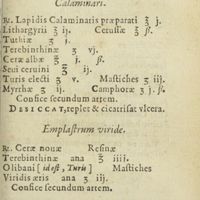 Calaminari.
℞. Lapidis Calaminaris præparati ℥ j.
Lithargyrii ℥ ij. Cerussæ ℥ ß.
Tuthiæ ʒ j.
Terebinthinæ ʒ vj.
Ceræ albæ ℥ j. ß.
Seui ceruini ℥ ij.
Turis electi ʒ v. Mastiches ʒ iij.
Myrrhæ ʒ ij. Camphoræ ʒ j. ß.
Confice secundum artem.
DESICCAT, replet & cicatrisat vlcera.
Emplastrum viride.
℞. Ceræ nouæ Resinæ
Terebinthinæ ana ℥ iiij.
Olibani [id est, Turis] Mastiches
Viridis æris ana ʒ iij.
Confice secundum artem.